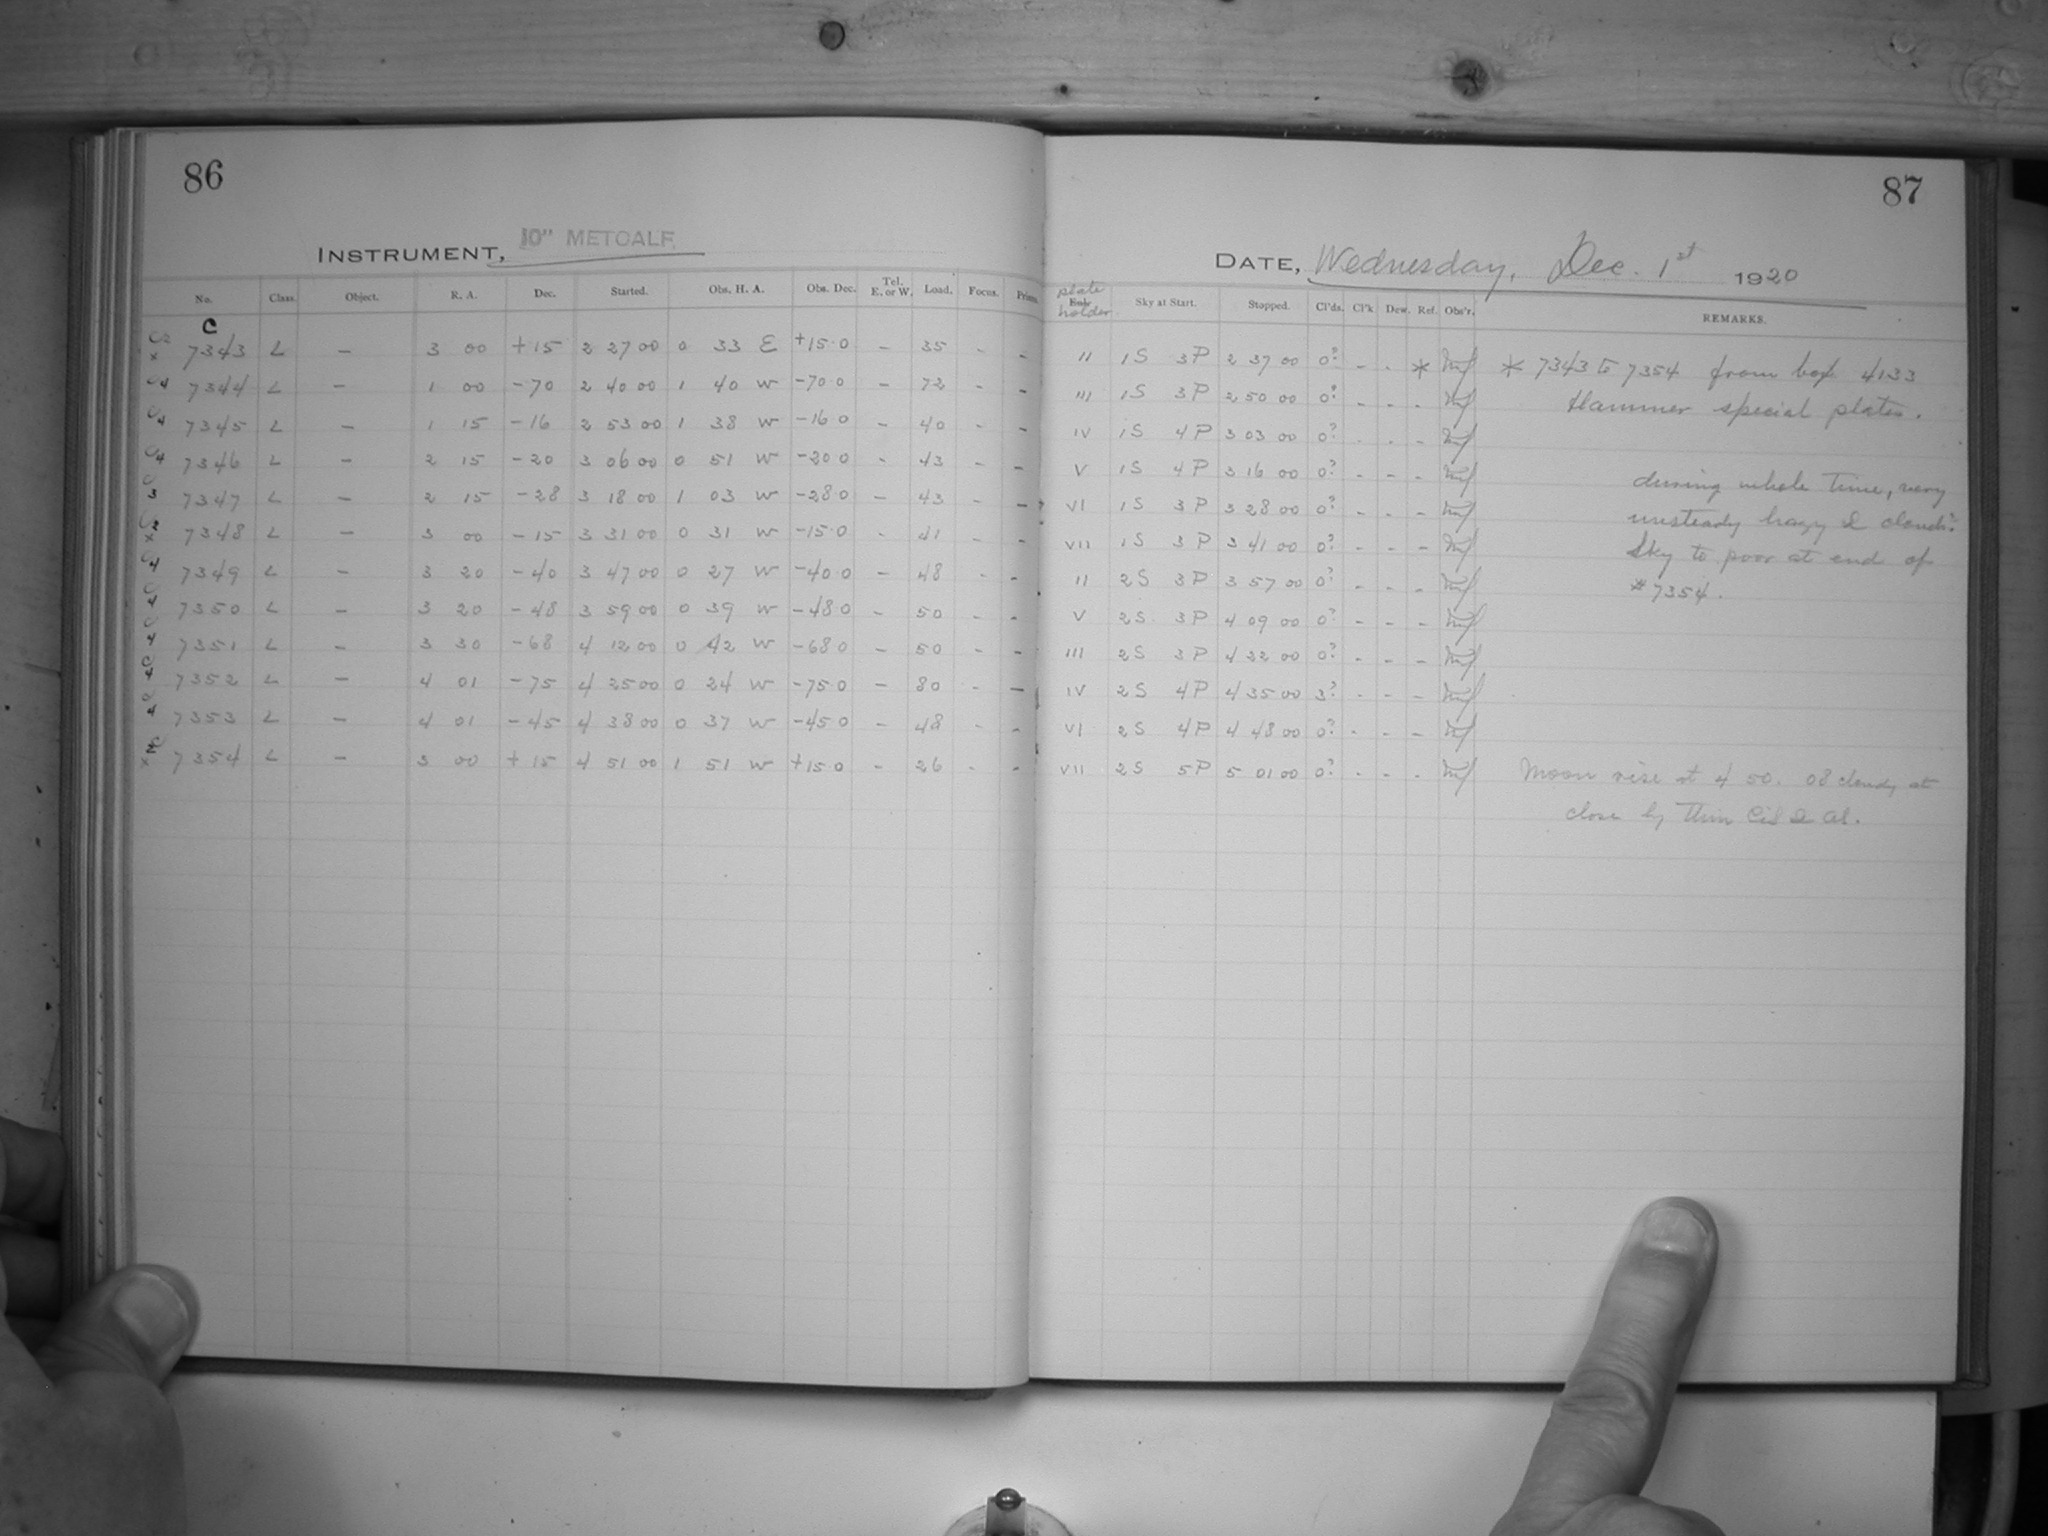 86
87
INSTRUMENT, 10" METCALF
DATE, Wednesday, Dec. 1st 1920
No. Class. Object. R. A. Dec. Started. Obs. H. A. Obs. Dec. Tel. E. or W. Load. Focus. Prisms. plate holder Sky at Start. Stopped. Cl'ds. Cl'k Dew. Ref. Obs'r. REMARKS.
C
7343 L - 3 00 +15 2 27 00 0 33 E +15.0 - 35 - - II 1S 3P 2 37 00 0? - - * * 7343 to 7354 from box 4133
7344 L - 1 00 -70 2 40 00 1 40 W -70.0 - 72 - - III 1S 3P 2 50 00 0? - - - Hammer special plates.
7345 L - 1 15 -16 2 53 00 1 38 W -16 0 - 40 - - IV 1S 4P 3 03 00 0? - - -
7346 L - 2 15 -20 3 06 00 0 51 W -20 0 - 43 - - V 1S 4P 3 16 00 0? - - - during whole time, very
7347 L - 2 15 -28 3 18 00 1 03 W -28.0 - 43 - - VI 1S 3P 3 28 00 0? - - - unsteady hazy & clouds?
7348 L - 3 00 -15 3 31 00 0 31 W -15.0 - 41 - - VII 1S 3P 3 41 00 0? - - - Sky to poor at end of
7349 L - 3 20 -40 3 47 00 0 27 W -40 0 - 48 - - II 2S 3P 3 57 00 0? - - - #7354.
7350 L - 3 20 -48 3 59 00 0 39 W -48 0 - 50 - - V 2S 3P 4 09 00 0? - - -
7351 L - 3 30 -68 4 12 00 0 42 W -68 0 - 50 - - III 2S 3P 4 22 00 0? - - -
7352 L - 4 01 -75 4 25 00 0 24 W -75 0 - 80 - - IV 2S 4P 4 35 00 3? - - -
7353 L - 4 01 -45 4 38 00 0 37 W -45 0 - 48 - - VI 2S 4P 4 48 00 0? - - -
7354 L - 3 00 +15 4 51 00 1 51 W +15 0 - 26 - - VII 2S 5P 5 01 00 0? - - - Moon rise at 4 50. 08 cloudy at
close by Thin